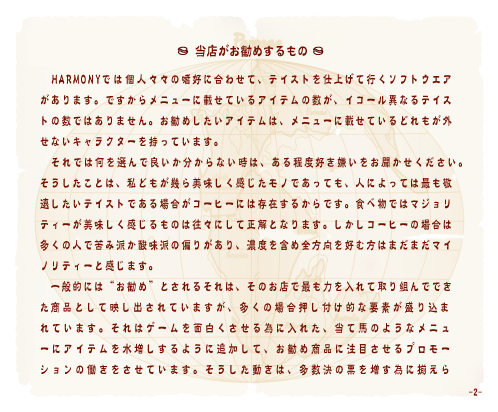 当店がお勧めするもの
HARMONYでは個人々々の嗜好に合わせて、テイストを仕上げて行くソフトウエア
があります。ですからメニューに載せているアイテムの数が、イコール異なるテイス
トの数ではありません。お勧めしたいアイテムは、メニューに載せているどれもが外
せないキャラクターを持っています。
それでは何を選んで良いか分からない時は、ある程度好き嫌いをお聞かせください。
そうしたことは、私どもが幾ら美味しく感じたモノであっても、人によっては最も敬
遠したいテイストである場合がコーヒーには存在するからです。食べ物ではマジョリ
ティーが美味しく感じるものは往々にして正解となります。しかしコーヒーの場合は
多くの人で苦み派か酸味派の偏りがあり、濃度を含め全方向を好む方はまだまだマイ
ノリティーと感じます。
一般的には“お勧め”とされるそれは、そのお店で最も力を入れて取り組んでき
た商品として映し出されていますが、多くの場合押し付け的な要素が盛り込ま
れています。それはゲームを面白くさせる為に入れた、当て馬のようなメニュ
ーにアイテムを水増しするように追加して、お勧め商品に注目させるプロモー
ションの働きをさせています。そうした動きは、多数決の票を増す為に揃えら
-2-